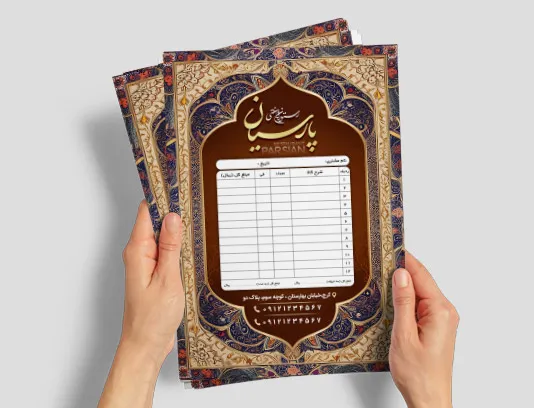 رستوران سنتی
پارسیان
PARSIAN
نام مشتری: تاریخ:
ردیف شرح کالا تعداد فی مبلغ کل (ریال)
۱
۲
۳
۴
۵
۶
۷
۸
۹
۱۰
۱۱
۱۲
ریال ریال
کرج،خیابان بهارستان ، کوچه سوم، پلاک دو
۰۹۱۲۱۲۳۴۵۶۷
۰۹۱۲۱۲۳۴۵۶۷